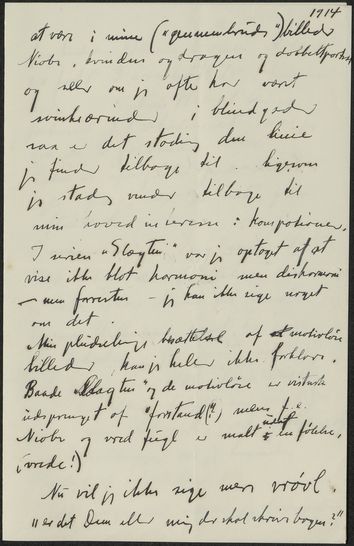 1914
at være i mine ("gennembruds") billeder
Niobe, kvinden og dragen og dobbeltportræt
og selv om jeg ofte har været
svinkeærinder i blindgyder
saa er det stadig den linie
jeg finder tilbage til. ligesom
jeg stadig vender tilbage til
min hovedinteresse: kompositionen.
I serien "Slægten" var jeg optaget af at
vise ikke blot harmoni men disharmoni
– men forresten – jeg kan ikke sige noget
om det
Min pludselige besættelse af motivløse
billeder kan jeg heller ikke forklare.
Baade "Slægten" og de motivløse er vistnok
udsprunget af "forstand"(?) mens f.e.
Niobe og vred fugl er malt udfra en følelse,
(vrede!)
Nu vil jeg ikke sige mere vrøvl.
"er det Dem eller mig der skal skrive bogen?"